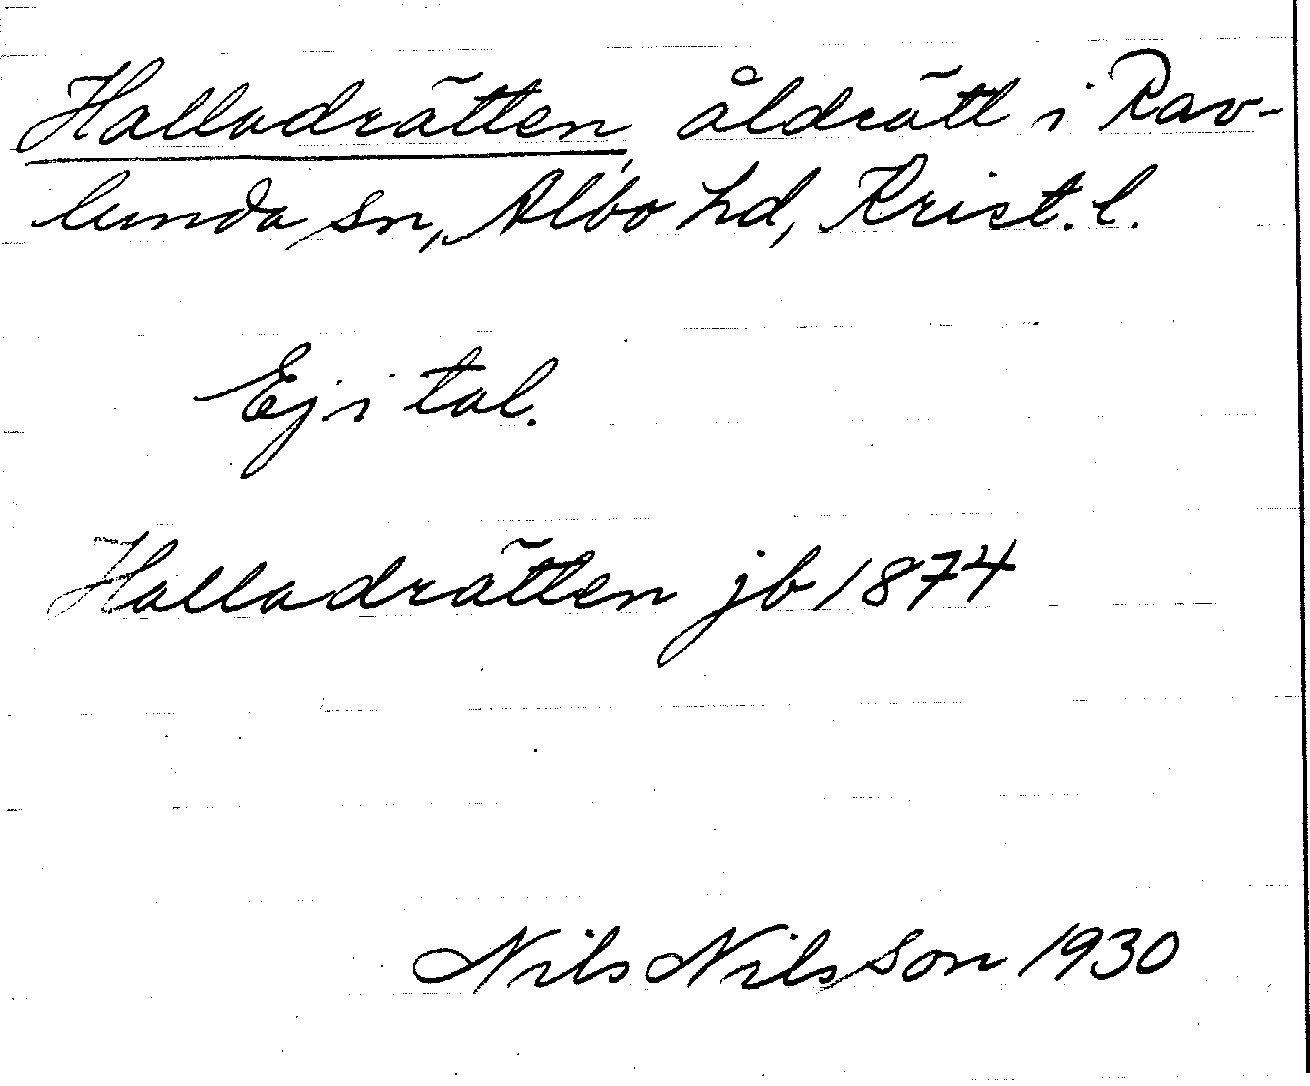 Halladrätten, åldrätt i Rav-
lunda sn, Albo hd, Krist. l.
Ej i tal.
Halladrätten jb 1874
Nils Nilsson 1930